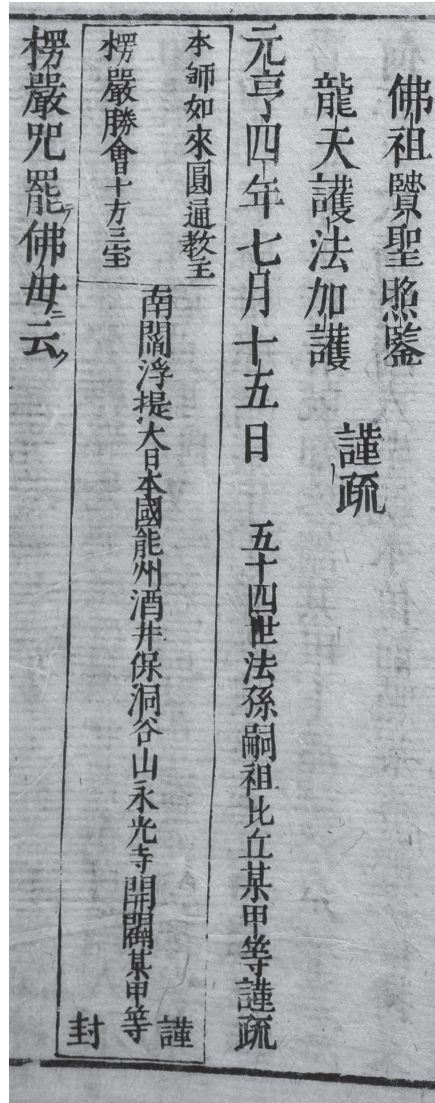 佛祖賢聖照鑒
龍天護法加護
謹疏
元亨四年七月十五日 五十四世法孫嗣祖比丘某甲等謹疏
本師如來圓通教主
楞嚴勝會十方三宝
南閻浮提大日本國能州酒井保洞谷山永光寺開闢某甲等
謹封
楞嚴咒罷佛母ニ云ク